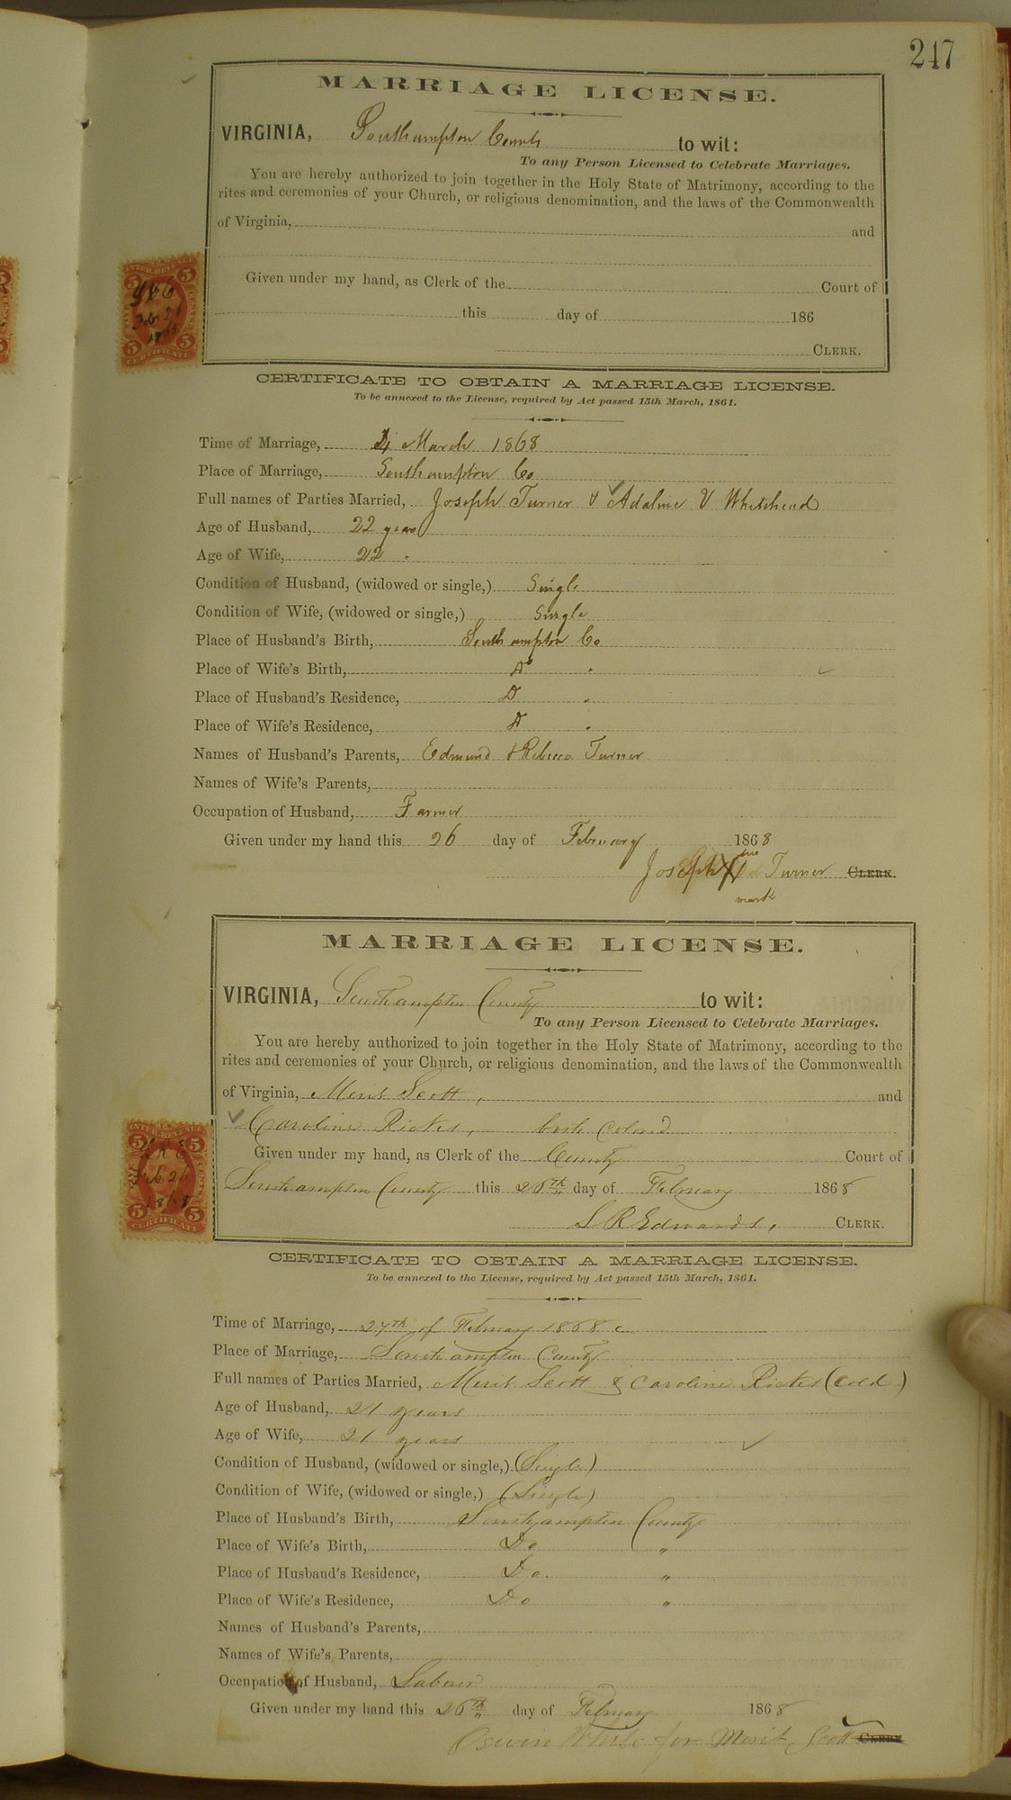 247
MARRIAGE LICENSE.
VIRGINIA, Southampton County to wit:
To any Person Licensed to Celebrate Marriages.
You are hereby authorized to join together in the Holy State of Matrimony, according to the
rites and ceremonies of your Church, or religious denomination, and the laws of the Commonwealth
of Virginia, and
Given under my hand, as Clerk of the Court of
this day of 186
CLERK.
INTER. REVENUE
5 5
Feb 26
1868
5 5
CERTIFICATE
CERTIFICATE TO OBTAIN A MARRIAGE LICENSE.
To be annexed to the License, required by Act passed 15th March, 1861.
Time of Marriage, 4 March 1868
Place of Marriage, Southampton Co
Full names of Parties Married, Joseph Turner & Adaline V Whitehead
Age of Husband, 22 years
Age of Wife, 22 "
Condition of Husband, (widowed or single,) Single
Condition of Wife, (widowed or single,) Single
Place of Husband's Birth, Southampton Co
Place of Wife's Birth, Do "
Place of Husband's Residence, D "
Place of Wife's Residence, D "
Names of Husband's Parents, Edmund & Rebecca Turner
Names of Wife's Parents,
Occupation of Husband, Farmer
Given under my hand this 26 day of February 1868
Joseph X Turner CLERK.
mark
MARRIAGE LICENSE.
VIRGINIA, Southampton County to wit:
To any Person Licensed to Celebrate Marriages.
You are hereby authorized to join together in the Holy State of Matrimony, according to the
rites and ceremonies of your Church, or religious denomination, and the laws of the Commonwealth
of Virginia, Merit Scott, and
Caroline Ricks, both Colored
Given under my hand, as Clerk of the County Court of
Southampton County this 26th day of February 1868
L R Edwards, CLERK.
INTER. REVENUE
5 5
L R E
Feb 26
1868
5 5
CERTIFICATE
CERTIFICATE TO OBTAIN A MARRIAGE LICENSE.
To be annexed to the License, required by Act passed 15th March, 1861.
Time of Marriage, 27th of February 1868
Place of Marriage, Southampton County
Full names of Parties Married, Merit Scott & Caroline Ricks (Cold)
Age of Husband, 21 years
Age of Wife, 21 years
Condition of Husband, (widowed or single,) (Single)
Condition of Wife, (widowed or single,) (Single)
Place of Husband's Birth, Southampton County
Place of Wife's Birth, Do "
Place of Husband's Residence, Do. "
Place of Wife's Residence, Do "
Names of Husband's Parents,
Names of Wife's Parents,
Occupation of Husband, Laborer
Given under my hand this 26th day of February 1868
White for Merit Scott CLERK